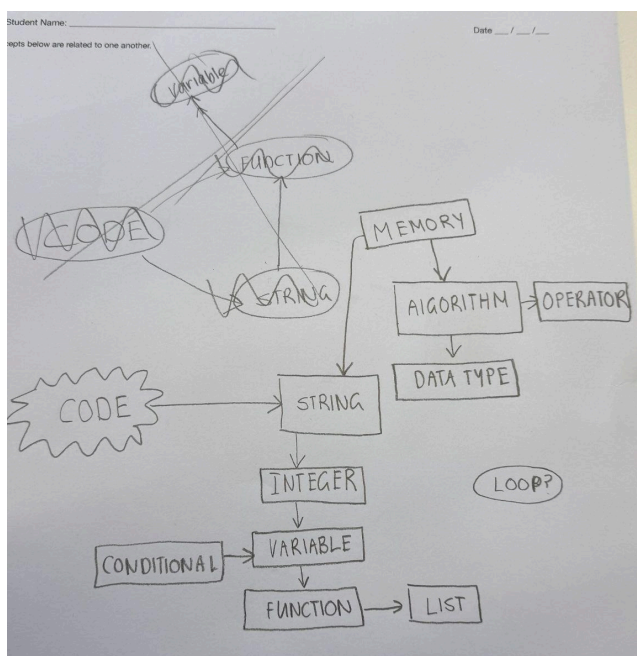 Student Name:
Date __/__/__
cepts below are related to one another.
variable
FUNCTION
CODE
STRING
MEMORY
AlGORITHM
OPERATOR
DATA TYPE
CODE
STRING
INTEGER
LOOP?
VARIABLE
CONDITIONAL
FUNCTION
LIST